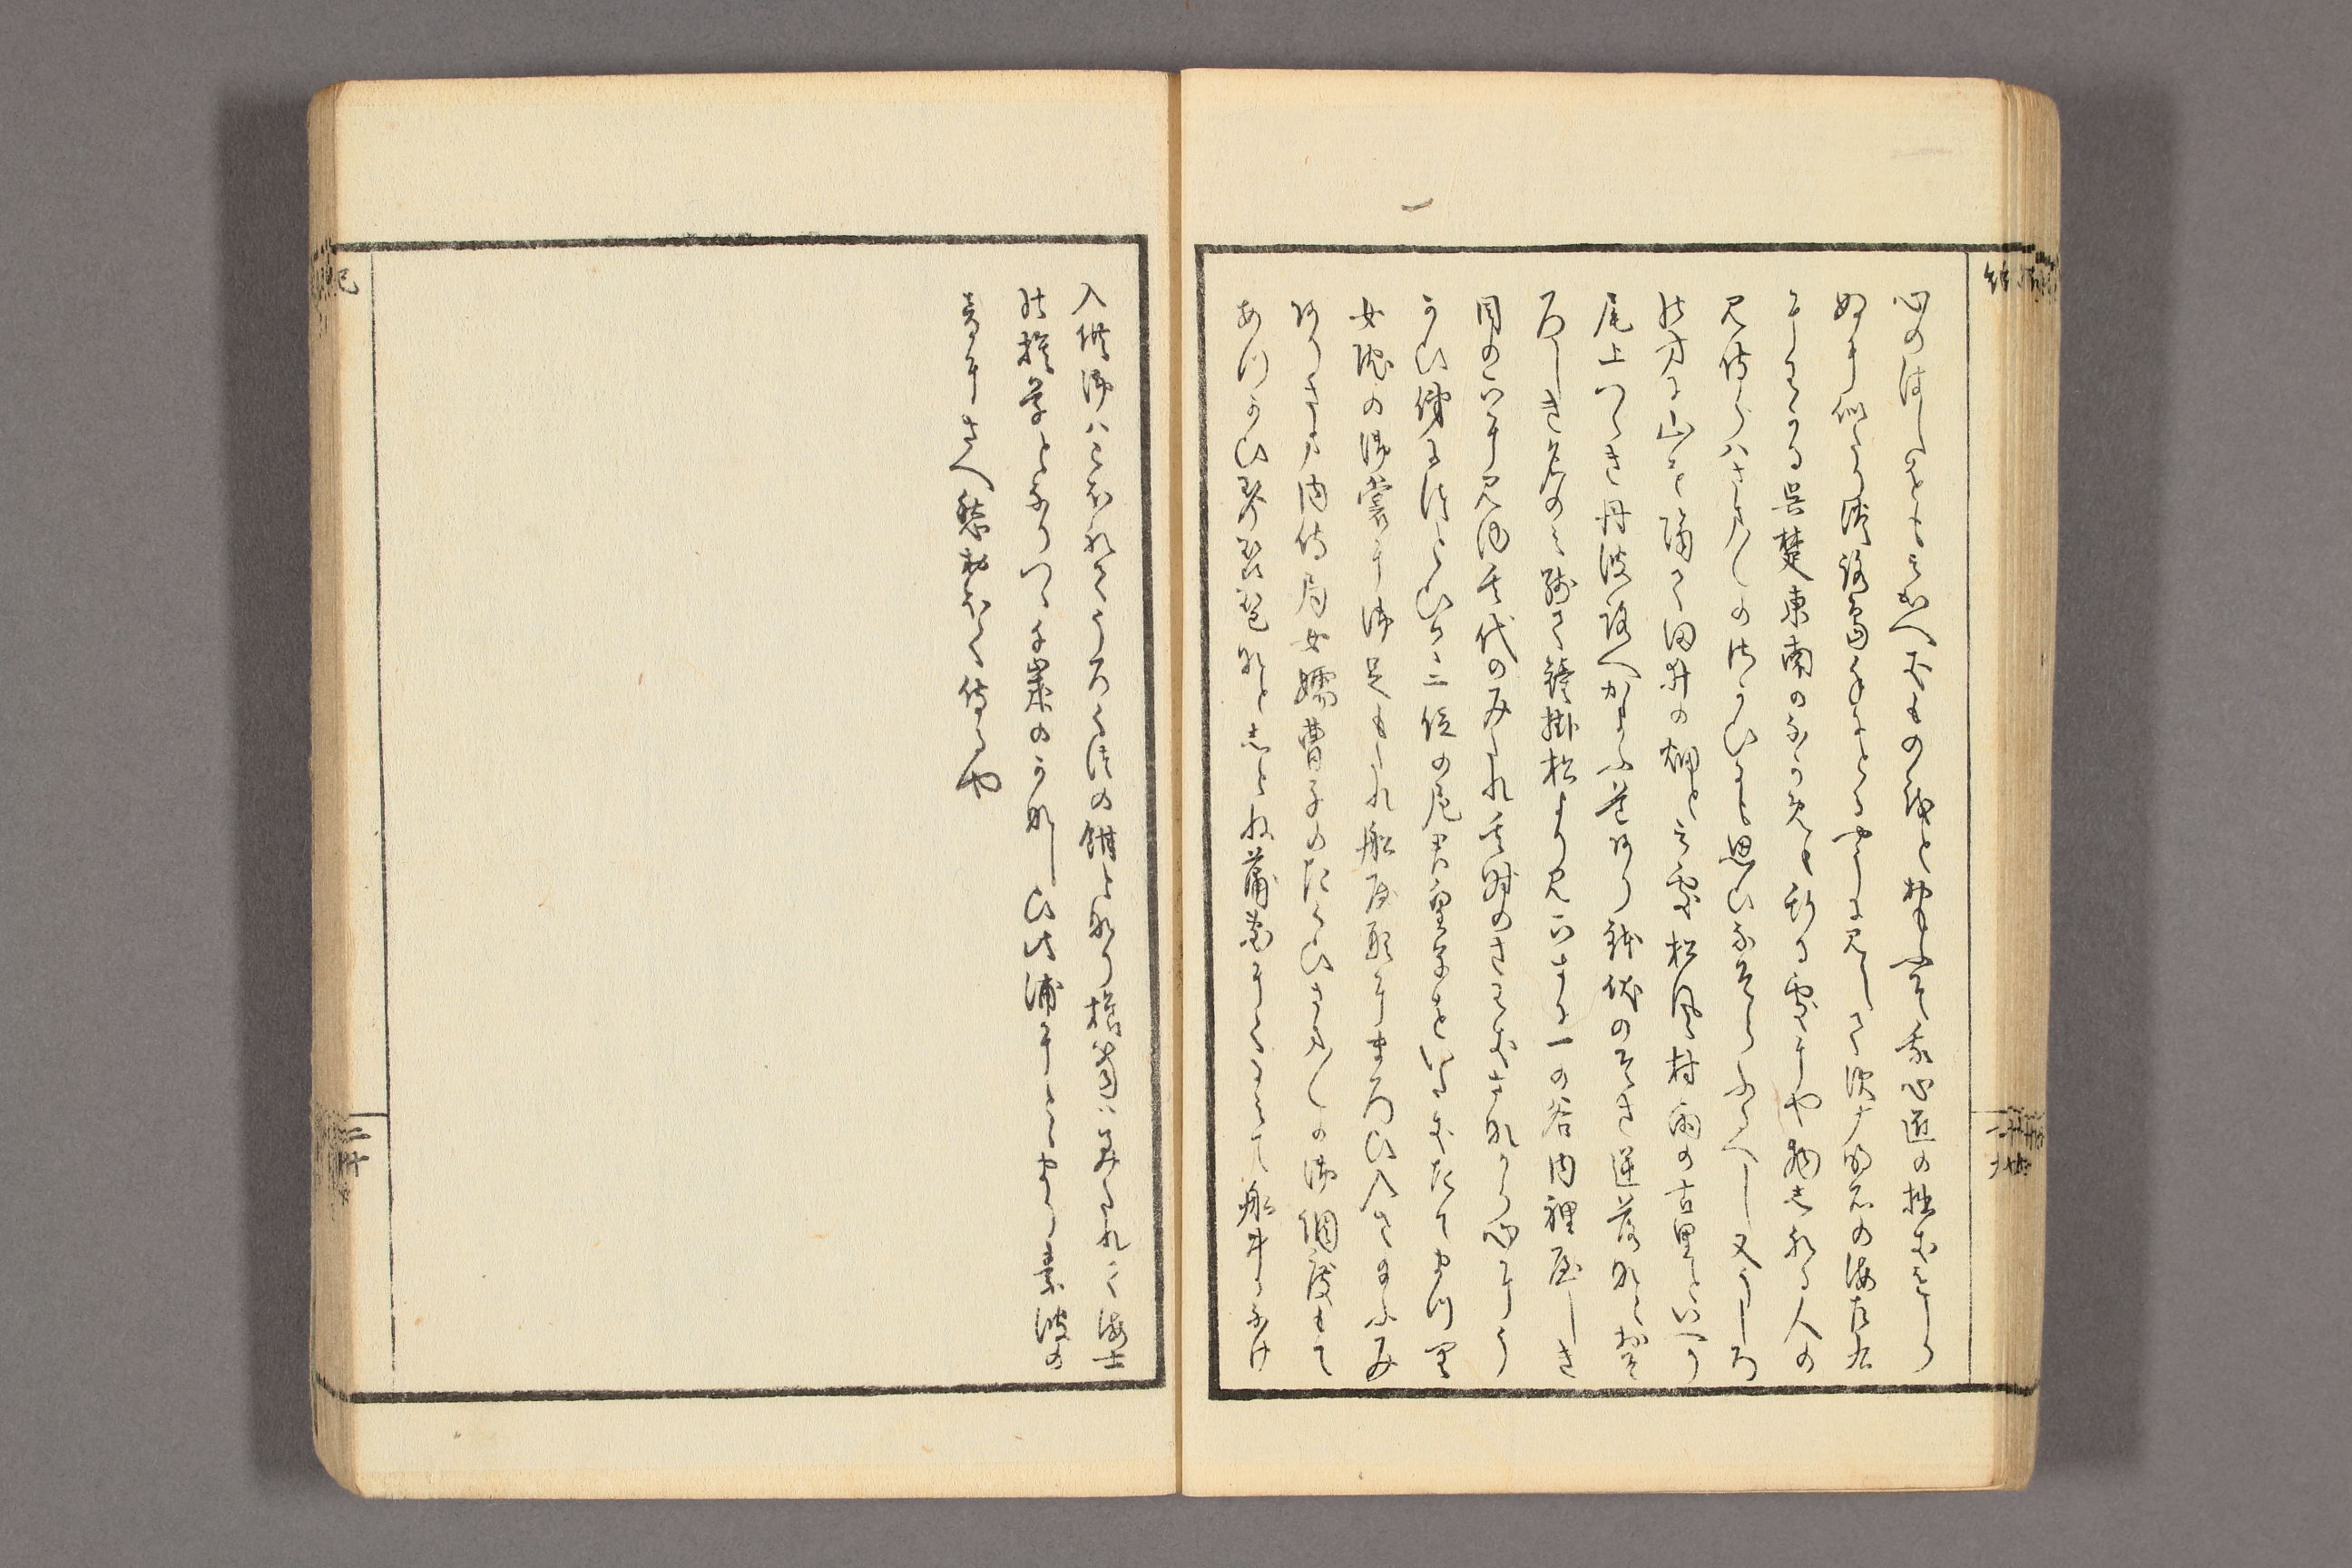 心のはしをもいひ出へきものをと思ふそ我心匠の拙なきをしら
ぬに似たり淡路嶋手にとるやうに見へて須广明石の海左右
にわかる呉楚東南のなかめも斯る處にや物しれる人の
見侍らハさま〳〵のさかひにも思ひなそらふへし又うしろ
の方に山を隔て田井の畑と云處松風村雨の古里といへり
尾上つゝき丹波路へかよふ道あり鉢伏のそき逆落なとおそ
ろしき名のみ残て鐘掛松より見下すに一の谷内裡屋しき
目の下に見ゆ其代のみたれ其時のさはきさなから心にう
かひ俤につとひて二位の尼君皇子をいたきたてまつり
女院の御裳に御足もたれ船屋形にまろひ入せ玉ふみ
ありさま内侍局女嬬曹子のたくひさま〳〵の御調度もて
あつかひ琴琵琶なとしとね蒲団にくるみて船中になけ
入供御ハこほれてうろくつの餌となり櫛笥ハみたれて海士
の捨草となりつゝ千歳のかなしひ此浦にとゝまり素波の
音にさへ愁おほく侍るや